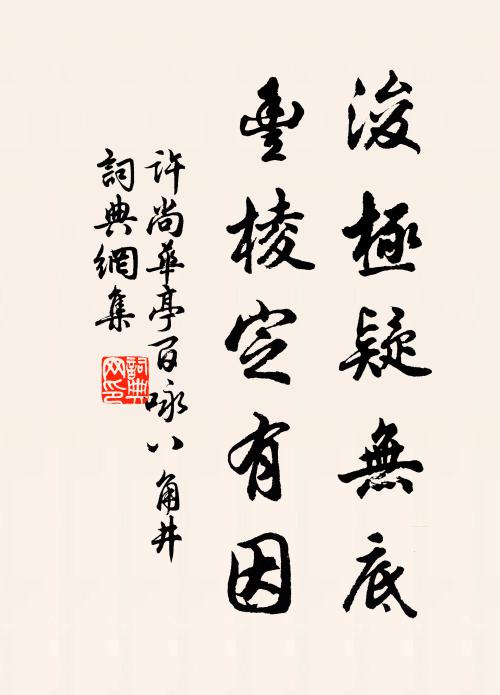 浚極疑無底
豐棱定有因
許尚華亭百咏八角井
詞典網集
詞典網印